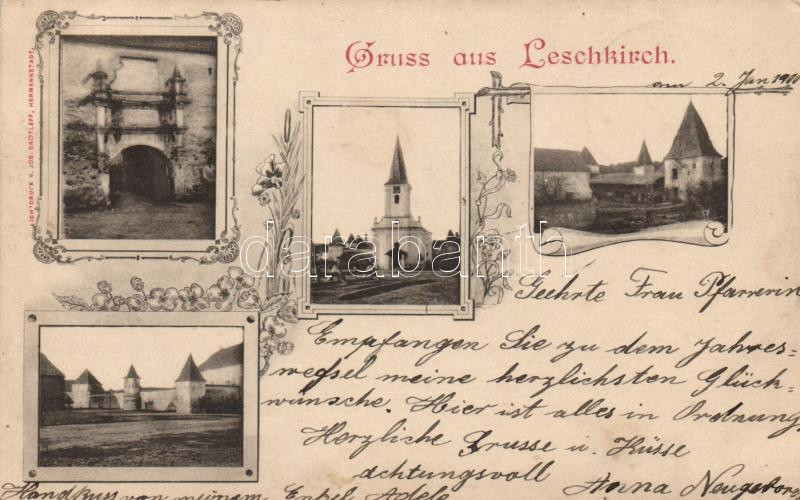 Gruss aus Leschkirch.
am 2. Jan 1900
LICHTDRUCK V. JOS. DROTLEFF, HERMANNSTADT.
darabanth
Geehrte Frau Pfarrerin
Empfangen Sie zu dem Jahres=
wechsel meine herzlichsten Glück=
wünsche. Hier ist alles in Ordnung
Herzliche Grusse u. Küsse
achtungsvoll
Anna Neugeborn
Handkuss von meinem Enkel Adele